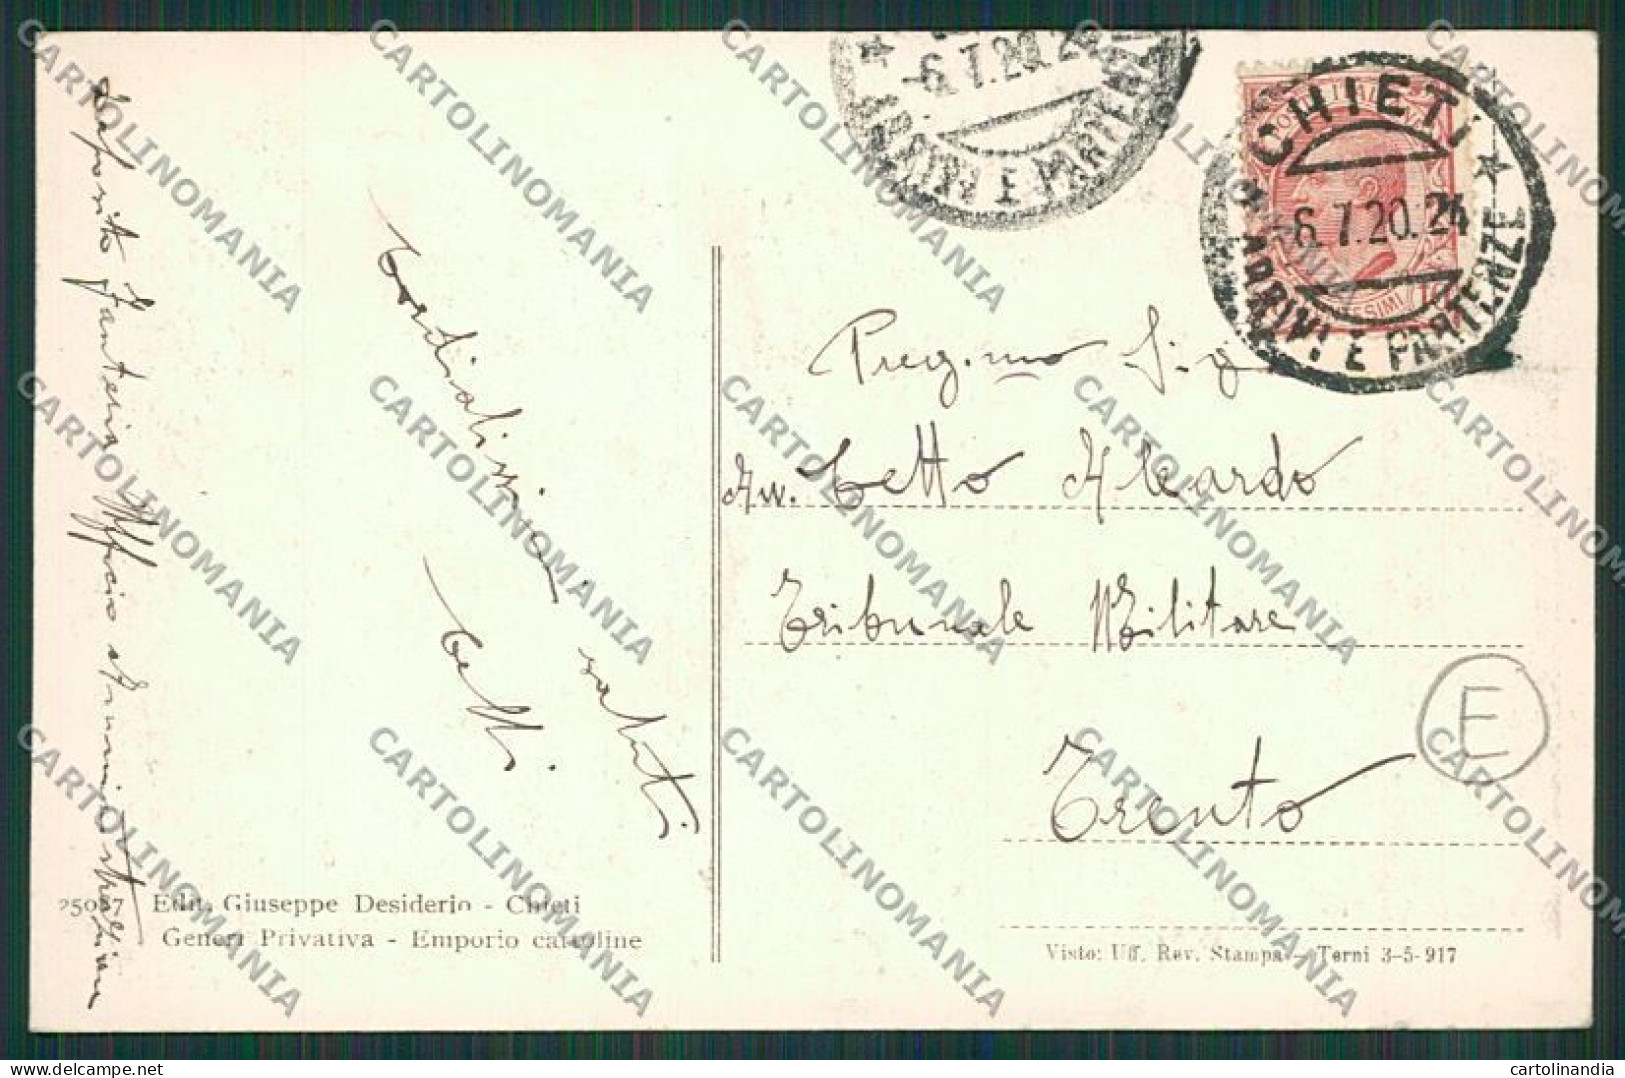 Deposito Fanteria Ufficio Amministrazione
Cordialissimi saluti
Cetti
25087 Edit. Giuseppe Desiderio - Chieti
Generi Privativa - Emporio cartoline
6.7.20.24
ARRIVI E PARTENZE
CHIETI
6.7.20.24
ARRIVI E PARTENZE
Preg.mo Sig
Av. Cetto Aleardo
Tribunale Militare
Trento
E
Visto: Uff. Rev. Stampa - Terni 3-5-917
CARTOLINOMANIA
delcampe.net
cartolinandia